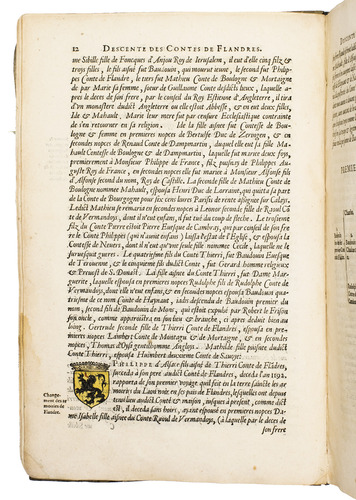 12 DESCENTE DES CONTES DE FLANDRES.
me Sibille fille de Foucques d'Anjou Roy de Ierusalem, il eut d'elle cinq filz &
troys filles, le filz aisné fut Baudouin, qui mourut ieune, le second fut Philip-
pes Conte de Flandre, le tiers fut Mathieu Conte de Boulogne & Mortaigne
de par Marie sa femme, soeur de Guillaume Conte desdicts lieux, laquelle a-
pres le deces de son frere, par le conseil du Roy Estienne d'Angleterre, il tira
d'un monastere dudict Angleterre ou elle estoit Abbesse, & en eut deux filles,
Ide & Mahault. Marie leur mere fut par censure Ecclesiastique contrainte
de s'en retourner en sa religion. Ide la fille aisnée fut Contesse de Bou-
logne & femme en premieres nopces de
en se-
condes nopces de Renaud Conte de Dampmartin, duquel elle eut sa fille aisnée Ma-
hault Contesse de Boulogne & de Dampmartin, laquelle fut mariee deux foys,
premierement à Monsieur Philippe de France, filz puisné de Philippes Au-
guste Roy de France, en secondes nopces elle fut mariee à Monsieur Alfonse filz
d'Alfonse second du nom, Roy de Castille. La seconde fille de Mathieu Conte de
Boulogne nommee Mahault, espousa Henri Duc de Lorraine, qui quicta sa part de
la Conté de Bourgogne pour six cens livres Parisis de rente
Ledict Mathieu se remaria en secondes nopces à Leonor seconde fille de Raoul Cõ-
te de Vermandoys, dont il n'eut nulz enfans, il fut tué du coup de fleche. Le troisieme
filz du Conte Pierre estoit Pierre Euesque de Cambray, qui par conseil de son fre-
re le Conte Philippes (qui n'avoit nuls enfans) laissa l'estat de l'Eglise, & espousa la
Contesse de Nevers, dont il n'eut qu'une seule fille nommee Cecile, laquelle ne
Le quatriesme filz du Conte Thierri, fut Baudouin Euesque
de Terouenne, & le cinquiesme dudict Conte, fut Gerard homme religieux
& Preuost de S. Donast. La fille aisnee du Conte Thierri, fut Dame Mar-
guerite, laquelle espousa en premieres nopces Rudolphe filz de Rudolphe Conte de
Vermandoys, dont elle n'eut enfans, & en secondes nopces espousa Baudouin qua-
triesme de ce nom Conte de Haynaut, iadis descendu de Baudouin premier du
nom, second filz de Baudouin de Mons, qui estoit expulsé par Robert le Frison
son oncle, comme apparoistra en son lieu & branche, ci apres deduict bien au
long. Gertrude seconde fille de Thierri Conte de Flandres, espousa en pre-
mieres nopces Lambert Conte de Montagu & de Mortagne, & en secondes
nopces, Thomas d'Ospe gentilhomme Angloys. Mathilde fille puisnee dudict
Conte Thierri, espousa Huimbert deuxiesme Conte de Savoye.
PHILIPPE d'Alsace filz aisné de Thierri Conte de Flãdres,
succeda à son pere audict Conté de Flandres, deceda l'an 1192.
rapporta de son premier voyage quil feit en la terre saincte les ar-
moiries du Lyon noir
tous lieu dudict Conté & maison, iusques à present, comme dict
est, il deceda sans hoirs, ayant espousé en premieres nopces Da-
me Isabelle fille aisnee du Conte Raoul de Vermandoys, (à laquelle par le deces de
son frere
Change-
ment des ar
moiries de
Flandre.